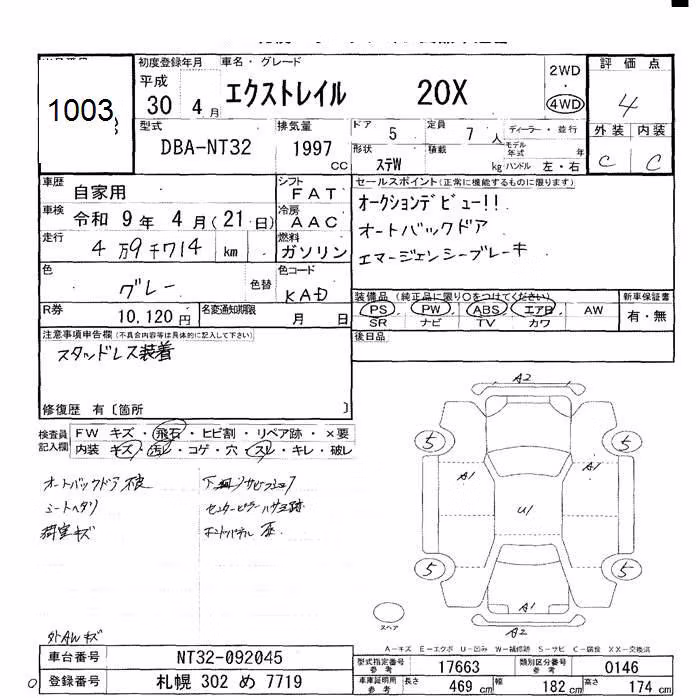 初度登録年月 車名・グレード
1003
平成 30 4月 エクストレイル 20X
2WD
4WD
評価点
4
外装 内装
C C
型式 DBA-NT32
排気量 1997 CC
ドア 5 定員 7人 ディーラー・並行
形状 ステW 積載 kg モデル年式 年
ハンドル 左・右
車歴 自家用
シフト FAT
車検 令和 9年 4月(21日)
冷房 AAC
走行 4万9千714 km
燃料 ガソリン
色 グレー 色替
色コード KAD
R券 10,120円 名変通知期限 月 日
セールスポイント(正常に機能するものに限ります)
オークションデビュー!!
オートバックドア
エマージェンシーブレーキ
装備品(純正品に限り○をつけてください) 新車保証書
PS PW ABS エアB AW 有・無
SR ナビ TV カワ
後日品
注意事項申告欄(不具合内容等は具体的に記入して下さい)
スタッドレス装着
修復歴 有〔箇所 〕
検査員記入欄
FW キズ・飛石・ヒビ割・リペア跡・×要
内装 キズ・汚れ・コゲ・穴・スレ・キレ・破レ
オートバックドア不良
シートヘタリ
荷室キズ
外AWキズ
A2
5 5
A1 A1
U1
5 5
A1
A2
スペア
A-キズ E-エクボ U-凹み W-補修跡 S-サビ C-腐食 XX-交換済
車台番号 NT32-092045
登録番号 札幌 302 め 7719
型式指定番号参考 17663 類別区分番号参考 0146
車庫証明用参考 長さ 469cm 幅 182cm 高さ 174cm